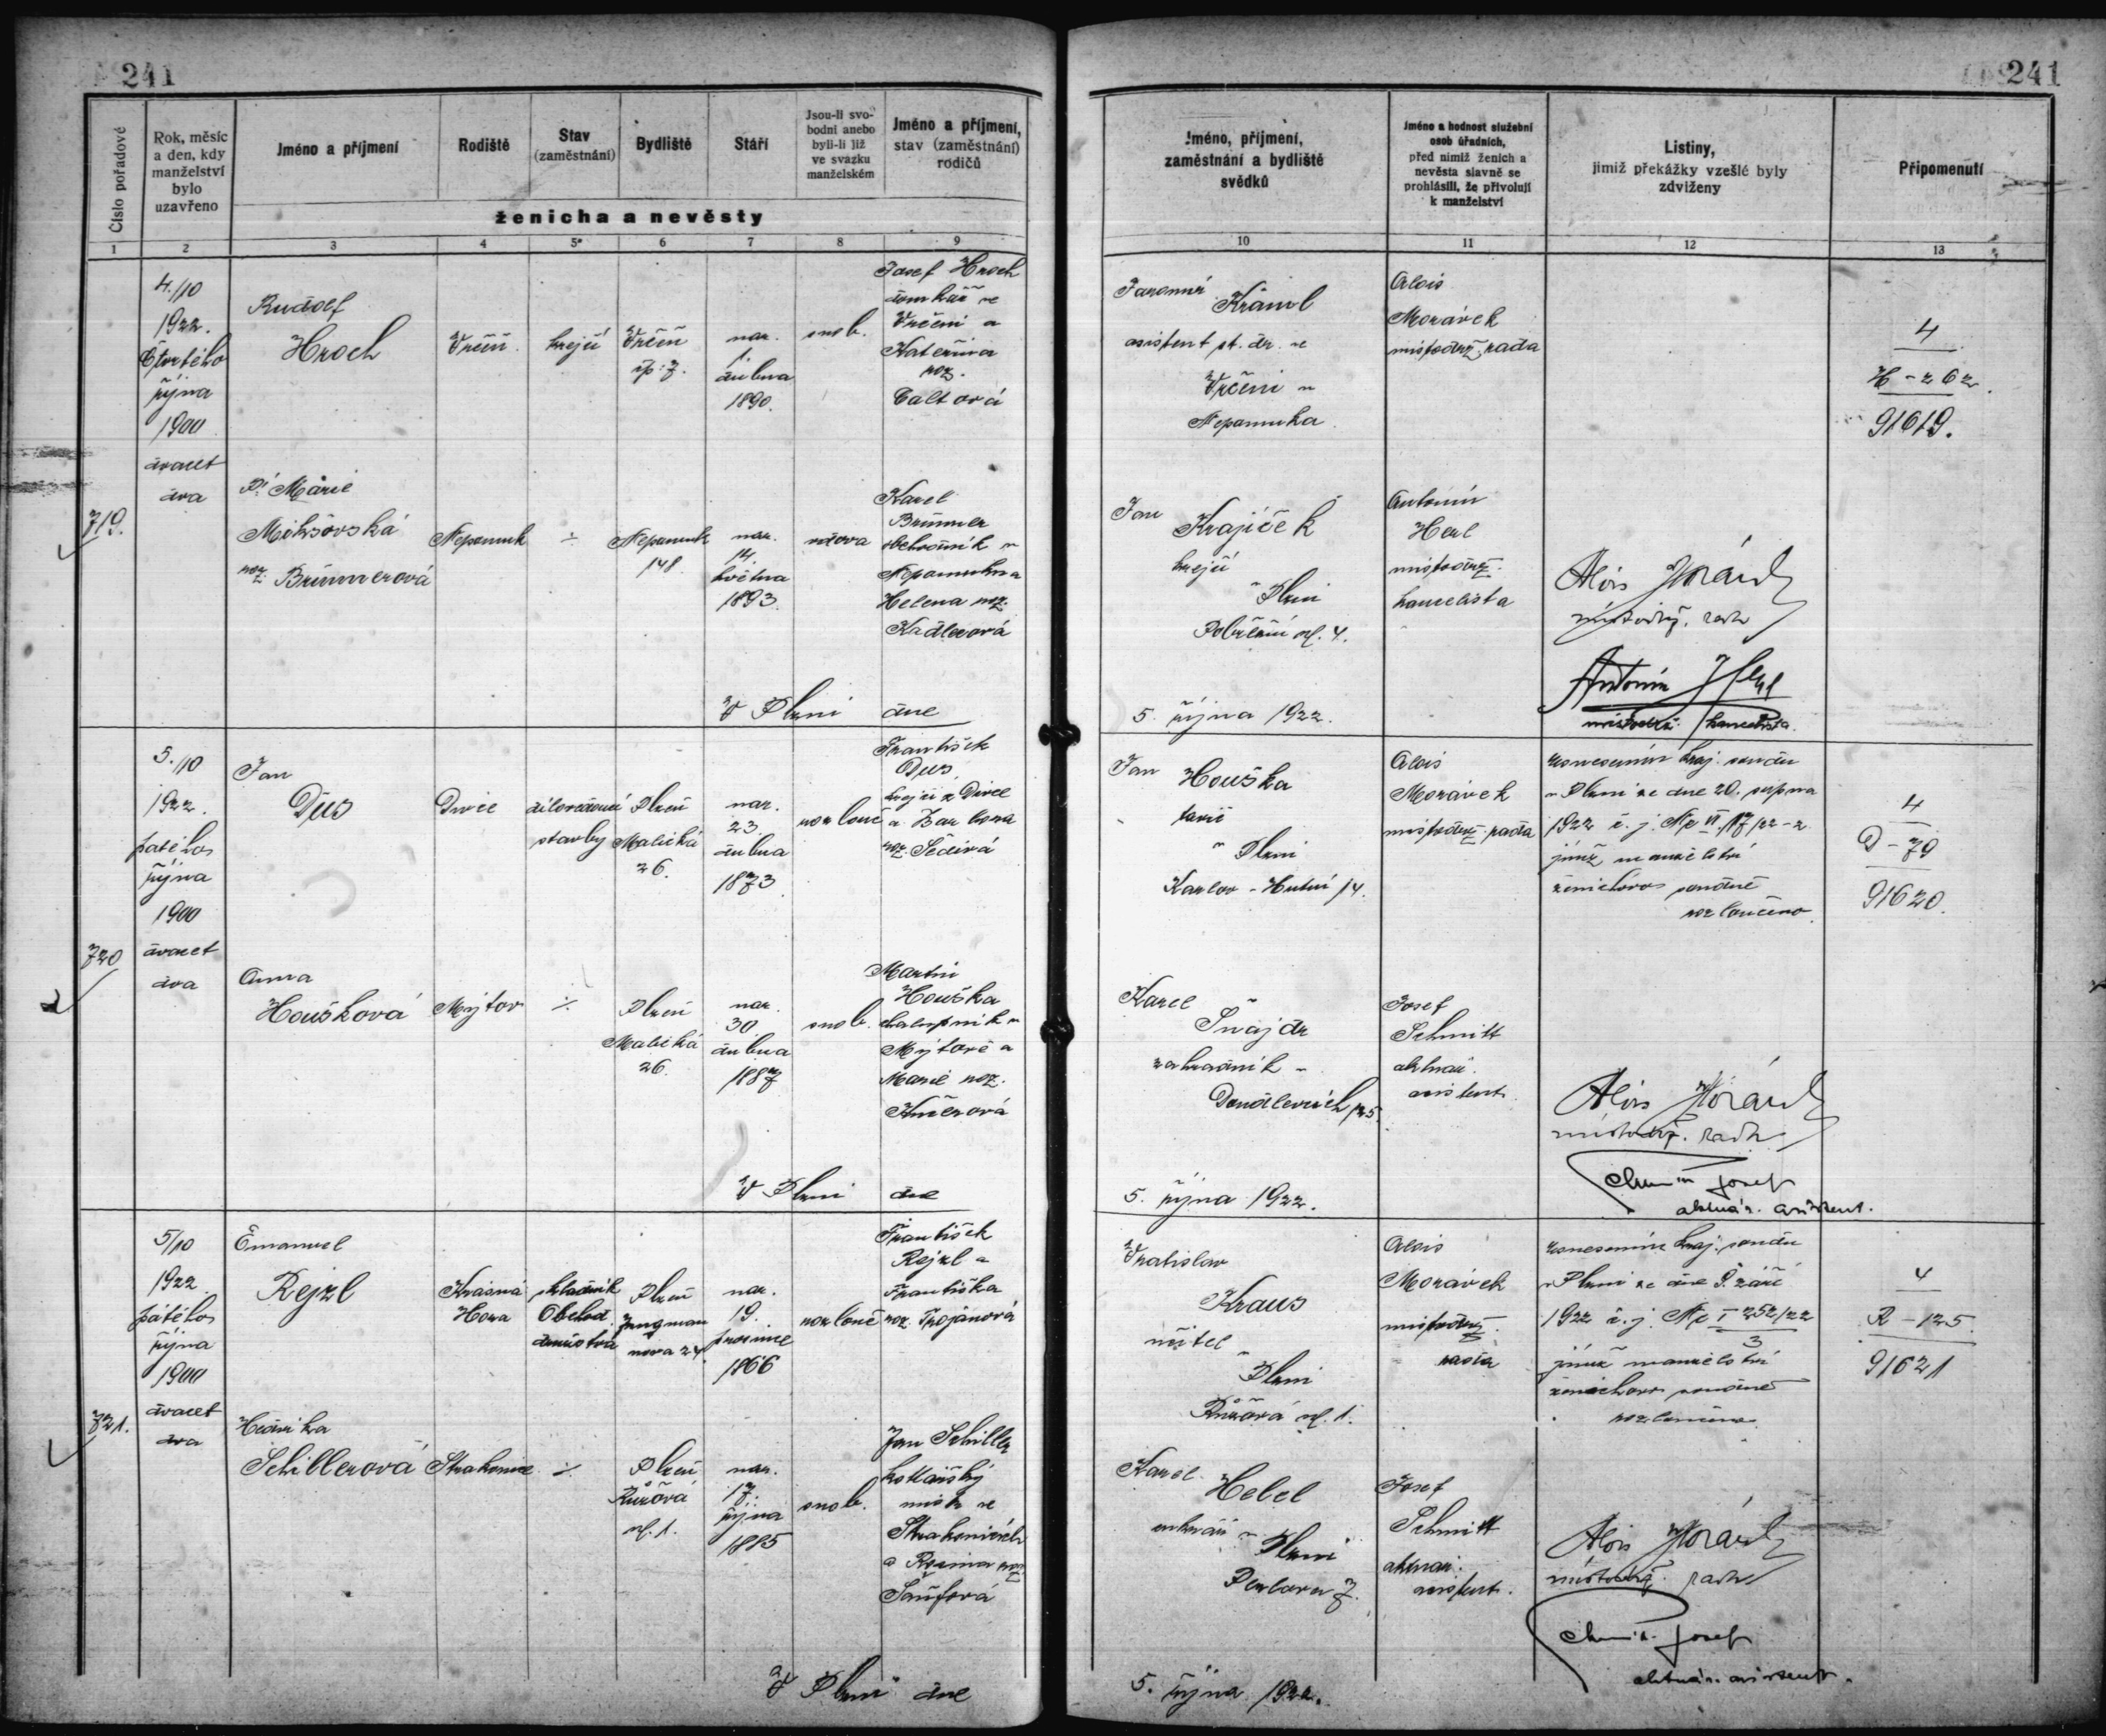 241
241
Číslo pořadové
Rok, měsíc
a den, kdy
manželství
bylo
uzavřeno
Jméno a příjmení
Rodiště
Stav
(zaměstnání)
Bydliště
Stáří
Jsou-li svo-
bodni anebo
byli-li již
ve svazku
manželském
Jméno a příjmení,
stav (zaměstnání)
rodičů
ženicha a nevěsty
1 2 3 4 5 6 7 8 9
Jméno, příjmení,
zaměstnání a bydliště
svědků
Jméno a hodnost služební
osob úřadních,
před nimiž ženich a
nevěsta slavně se
prohlásili, že přivolují
k manželství
Listiny,
jimiž překážky vzešlé byly
zdviženy
Připomenutí
10 11 12 13
719.
4./10
1922.
Čtvrtého
října
1900
dvacet
dva
Rudolf
Hroch
Vrčeň
krejčí
Vrčeň
čp. 7.
nar.
1.
dubna
1890.
svob.
Josef Hroch
domkář ve
Vrčeni a
Kateřina
roz.
Caltová
Jaromír
asistent st. dr. ve
Vrčeni u
Nepomuka
Alois
Morávek
místodrž. rada
4
H - 262
91619.
Pí Marie
roz. Brümmerová
Nepomuk
÷
Nepomuk
148
nar.
14.
května
1893.
vdova
Karel
Brümmer
obchodník v
Helena roz.
Kadlecová
Jan
Krajíček
krejčí
v Plzni
Antonín
Herl
místodrž.
kancelista
Alois Morávek
místodrž. rada
Antonín Herl
místodrž. kancelista.
V Plzni dne
5. října 1922.
720
5./10
1922.
pátého
října
1900
dvacet
dva
Jan
Dus
Divce
dílovedoucí
stavby
Plzeň
Malická
26.
nar.
23.
dubna
1873
rozlouč
František
Dus
krejčí z Divce
a Barbora
roz. Šedivá
Jan
Houška
v Plzni
Karlov - Hutní 14.
Alois
Morávek
místodrž. rada
usnesením kraj. soudu
v Plzni ze dne 20. srpna
1922 č. j. Nc VI 17/22-2
jímž manželství
ženichovo soudně
rozloučeno.
4
D - 79
91620.
Anna
Houšková
Mýtov
÷
Plzeň
Malická
26.
nar.
30.
dubna
1887
svob.
Martin
Houška
chalupník v
Mýtově a
Marie roz.
Kučerová
Karel
Šnajdr
zahradník v
Doudlevcích 125
Josef
Schmitt
aktuár.
asistent.
Alois Morávek
místodrž. rada
Schmitt Josef
aktuár. asistent.
V Plzni dne
5. října 1922.
721.
5/10
1922
pátého
října
1900
dvacet
dva
Emanuel
Rejzl
Krásná
Hora
skladník
Obchod.
družstva
Plzeň
Jungman
nova 24
nar.
19.
prosince
1866
rozlouč
František
Rejzl a
Františka
roz. Trojanová
Vratislav
Kraus
učitel
v Plzni
Růžová ul. 1.
Alois
Morávek
místodrž.
rada
usnesením kraj. soudu
v Plzni ze dne 9. září
1922 č. j. Nc I 252/22
3
jímž manželství
ženichovo soudně
rozloučeno
4
R - 125.
91621
Hedvika
Schillerová
Strakonice
÷
Plzeň
Růžová
ul. 1.
nar.
17.
října
1885
svob.
Jan Schiller
kotlářský
mistr ve
Strakonicích
a Rosina roz.
Šaufová
Karel
Hebel
cukrář v
Plzni
Perlova 7.
Josef
Schmitt
aktuár.
asistent.
Alois Morávek
místodrž. rada
Schmitt Josef
aktuár. asistent.
V Plzni dne
5. října 1922.